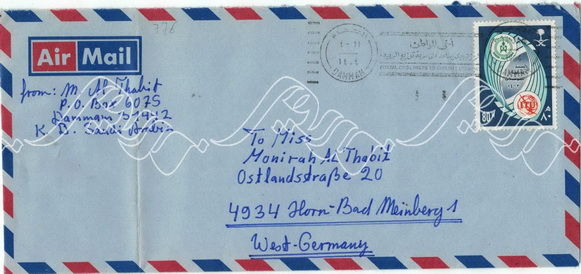 376
Air Mail
from: M Al Thabit
P.O. Box 6075
Dammam 31442
K. D. Saudi Arabia
DAMMAM
80
٨٠
To Miss
Monirah AL Thabit
Ostlandstraße 20
4934 Horn-Bad Meinberg 1
West-Germany